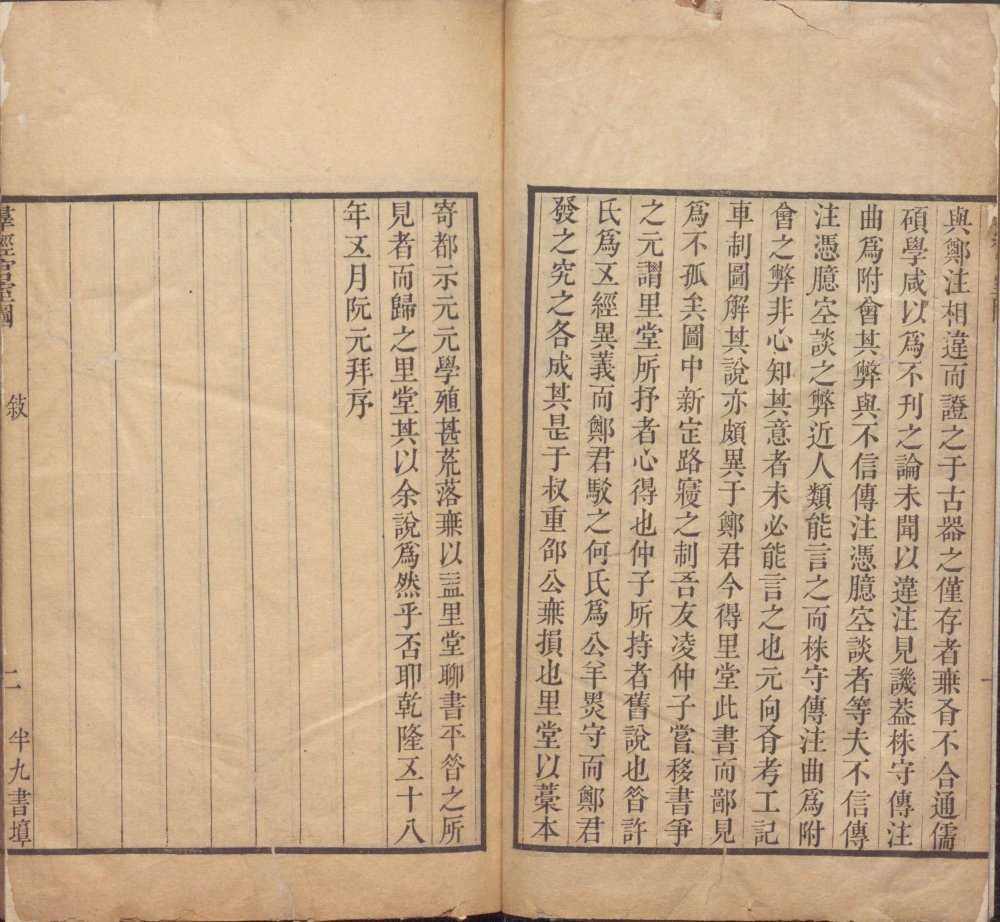 與鄭注相違而證之于古器之僅存者無肴不合通儒
碩學咸以爲不刊之論未聞以違注見譏葢株守傳注
曲爲附會其弊與不信傳注憑臆空談者等夫不信傳
注憑臆空談之弊近人類能言之而株守傳注曲爲附
會之弊非心知其意者未必能言之也元向肴考工記
車制圖解其說亦頗異于鄭君今得里堂此書而鄙見
爲不孤矣圖中新定路寢之制吾友凌仲子嘗移書爭
之元謂里堂所抒者心得也仲子所持者舊說也昝許
氏爲五經異義而鄭君駁之何氏爲公羊墨守而鄭君
發之究之各成其是于叔重邵公無損也里堂以藁本
寄都示元元學殖甚荒落無以益里堂聊書平昝之所
見者而歸之里堂其以余說爲然乎否耶乾隆五十八
年五月阮元拜序
羣經宮室圖
敘
二
半九書塾